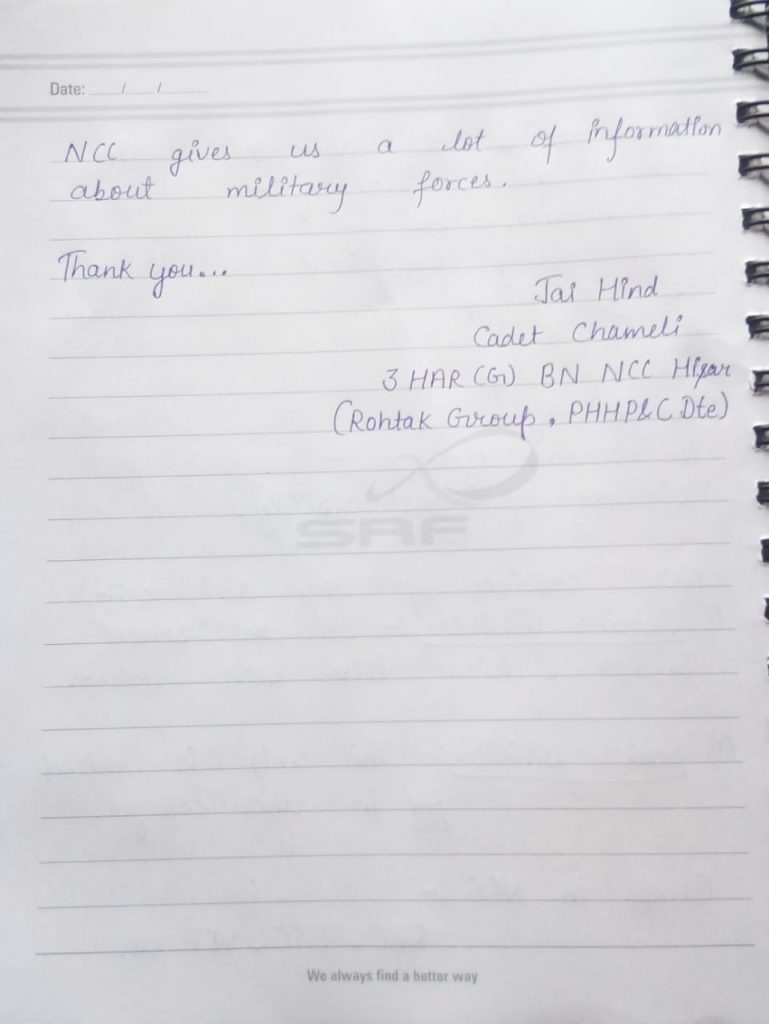 Date: / /
NCC gives us a lot of information
about military forces.
Thank you...
Jai Hind
Cadet Chameli
3 HAR (G) BN NCC Hisar
(Rohtak Group, PHHP&C Dte)
SRF
We always find a better way